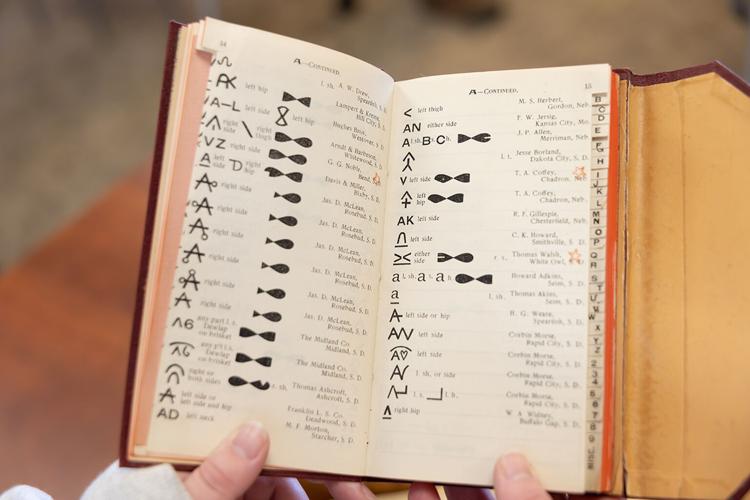 14
A—CONTINUED.
l. sh. A. W. Drew,
Spearfish, S. D.
left hip
Lampert &
Hill City, S. D.
A-L left side left hip
Hughes Bros.,
Westover, S. D.
right side \ right thigh
Arndt &
Whitewood, S. D.
VZ right side
G. G. Noble,
Bend, S. D.
A left side D right hip
Davis & Miller,
Bixby, S. D.
A right side
Jas. D. McLean,
Rosebud, S. D.
A right side
Jas. D. McLean,
Rosebud, S. D.
A right side
Jas. D. McLean,
Rosebud, S. D.
A right side
Jas. D. McLean,
Rosebud, S. D.
A right side
Jas. D. McLean,
Rosebud, S. D.
A right side
Jas. D. McLean,
Rosebud, S. D.
any part l. s.
Dewlap
or brisket
The Midland Co.
Midland, S. D.
any p't l. s.
Dewlap
or brisket
The Midland Co.
Midland, S. D.
right or
both sides
r. sh. Thomas Ashcroft,
Ashcroft, S. D.
left side or
left side and hip
Franklin L. S. Co.
Deadwood, S. D.
AD left neck
M. F. Morton,
Starcher, S. D.
A—CONTINUED. 15
< left thigh
M. S. Herbert,
Gordon, Neb.
AN either side
F. W. Jersig,
Kansas City, Mo.
A l. sh. B l. s. C l. h.
J. P. Allen,
Merriman, Neb.
l. t. Jesse Borland,
Dakota City, S. D.
V left side
T. A. Coffey,
Chadron, Neb.
left hip
T. A. Coffey,
Chadron, Neb.
AK left side
R. F. Gillespie,
Chesterfield, Neb.
left side
C. K. Howard,
Smithville, S. D.
either side
r. s. Thomas Walsh,
White Owl, S. D.
a l. sh. a l. s. a l. h.
Howard Adkins,
Seim, S. D.
a
l. sh. Thomas Akins,
Seim, S. D.
A left side or hip
H. G. Weare,
Spearfish, S. D.
left side
Corbin Morse,
Rapid City, S. D.
A♡ left side
Corbin Morse,
Rapid City, S. D.
l. sh. or side
Corbin Morse,
Rapid City, S. D.
l. s. l. h.
Corbin Morse,
Rapid City, S. D.
right hip
W. A. Widney,
Buffalo Gap, S. D.
B
C
D
E
F
G
H
I
J
K
L
M
N
O
P
Q
R
S
T
U
V
W
X
Y
Z
2
3
4
5
6
7
8
9